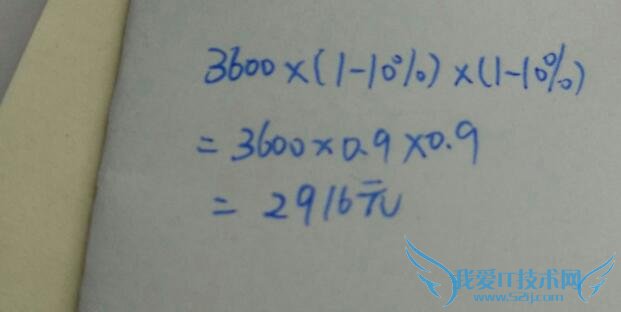 3600×(1-10%)×(1-10%)
=3600×0.9×0.9
=2916元
我爱IT技术网
www.52ij.com